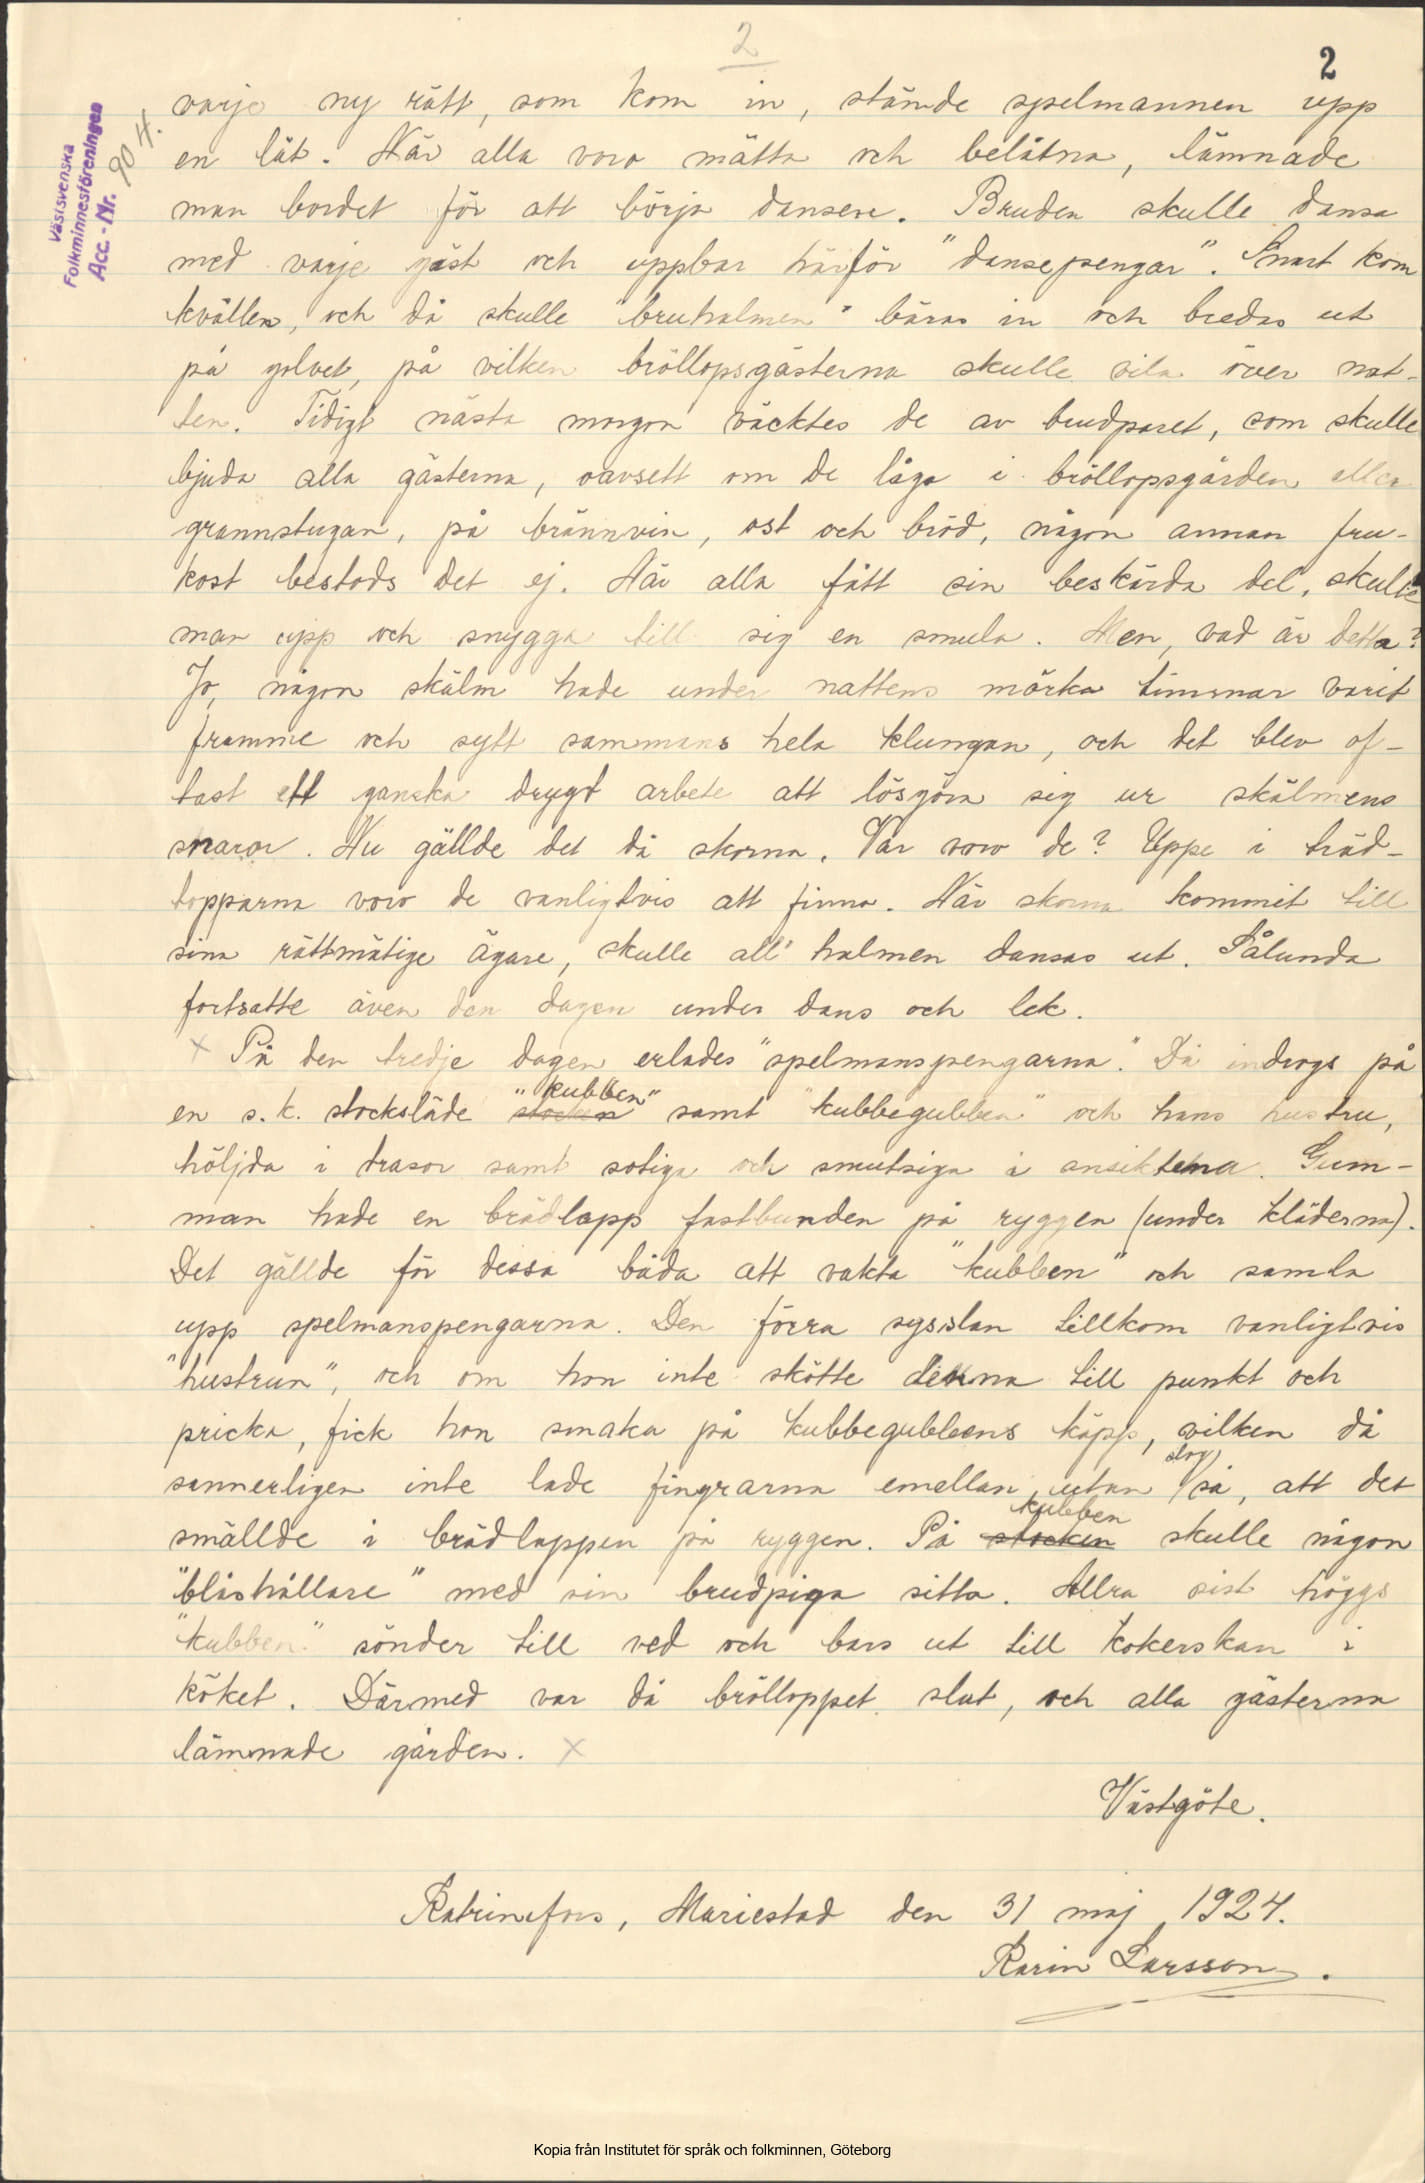 2
2
Västsvenska
Folkminnesföreningen
Acc.-Nr. 90 H.
varje ny rätt, som kom in, stämde spelmannen upp
en låt. När alla voro mätta och belåtna, lämnade
man bordet för att börja dansen. Bruden skulle dansa
med varje gäst och uppbar härför "dansepengar". Snart kom
kvällen, och då skulle "bruhalmen" bäras in och bredas ut
på golvet, på vilken bröllopsgästerna skulle vila över nat-
ten. Tidigt nästa morgon väcktes de av brudparet, som skulle
bjuda alla gästerna, oavsett om de lågo i bröllopsgården eller
grannstugan, på brännvin, ost och bröd, någon annan fru-
kost bestods det ej. När alla fått sin beskärda del, skulle
man upp och snygga till sig en smula. Men, vad är detta?
Jo, någon skälm hade under nattens mörka timmar varit
framme och sytt sammans hela klungan, och det blev of-
tast ett ganska drygt arbete att lösgöra sig ur skälmens
snaror. Nu gällde det då skorna. Var voro de? Uppe i träd-
topparna voro de vanligtvis att finna. När skorna kommit till
sina rättmätige ägare, skulle all halmen dansas ut. Sålunda
fortsatte även den dagen under dans och lek.
x På den tredje dagen erlades "spelmanspengarna." Då indrogs på
en s.k. stocksläde stocken "kubben" samt "kubbegubben" och hans hustru,
höljda i trasor samt sotiga och smutsiga i ansiktena. Gum-
man hade en brädlapp fastbunden på ryggen (under kläderna).
Det gällde för dessa båda att vakta "kubben" och samla
upp spelmanspengarna. Den förra sysslan tillkom vanligtvis
"hustrun", och om hon inte skötte denna till punkt och
pricka, fick hon smaka på kubbegubbens käpp, vilken då
sannerligen inte lade fingrarna emellan, utan slog så, att det
smällde i brädlappen på ryggen. På stocken kubben skulle någon
"blåshållare" med sin brudpiga sitta. Allra sist höggs
"kubben" sönder till ved och bars ut till kokerskan i
köket. Därmed var då bröllopet slut, och alla gästerna
lämnade gården. x
Västgöte.
Katrinefors, Mariestad den 31 maj 1924.
Karin Larsson.
Kopia från Institutet för språk och folkminnen, Göteborg